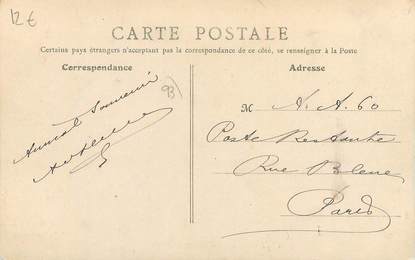 12€
CARTE POSTALE
Certains pays étrangers n'acceptant pas la correspondance de ce côté, se renseigner à la Poste
Correspondance
Adresse
93)
Amical Souvenir
M A. A. 60
Poste Restante
Rue Bleue
Paris